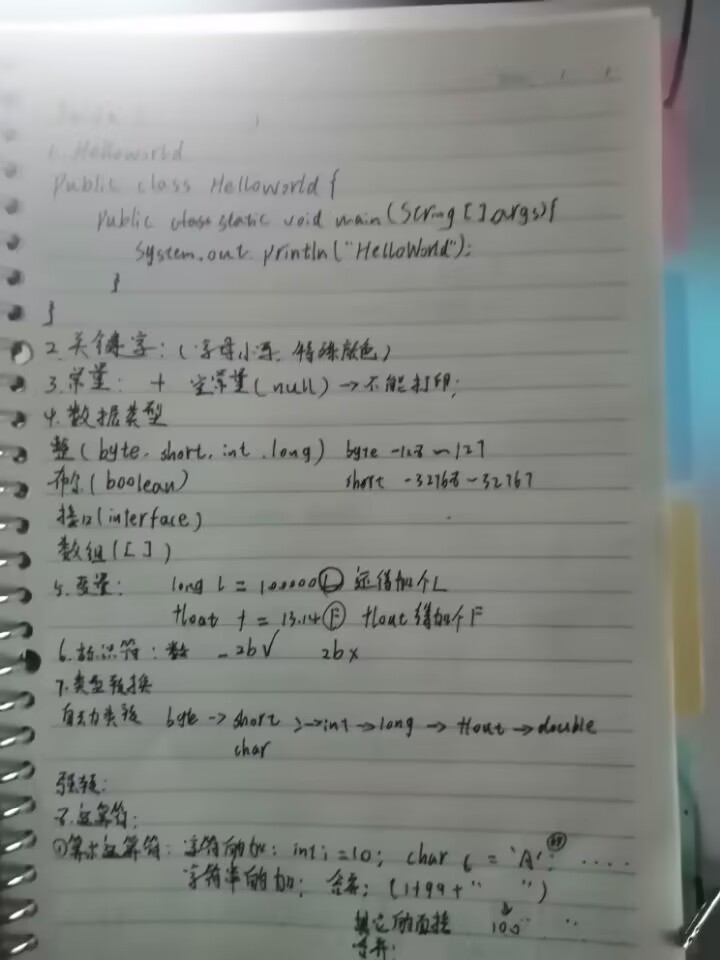 1. Helloworld
Public class Helloworld {
Public class static void main (String [ ] args) {
System.out. println ("HelloWorld");
}
}
2. 关键字: (字母小写, 特殊颜色)
3. 常量: + 空常量 (null) → 不能打印;
4. 数据类型
整 (byte, short, int, long) byte -128 ~ 127
布尔 (boolean) short -32768 ~ 32767
接口 (interface)
数组 ([ ])
5. 变量: long l = 100000L 还得加个L
float f = 13.14F float得加个F
6. 标识符: 数 _2b √ 2b ×
7. 类型转换
自动类转 byte -> short >→ int → long → float → double
char
强转:
8. 运算符:
①算术运算符: 字符的加: int i = 10; char c = 'A'; ....
字符串的加: 合并: (1+99+" ")
其它的直接 100
合并: